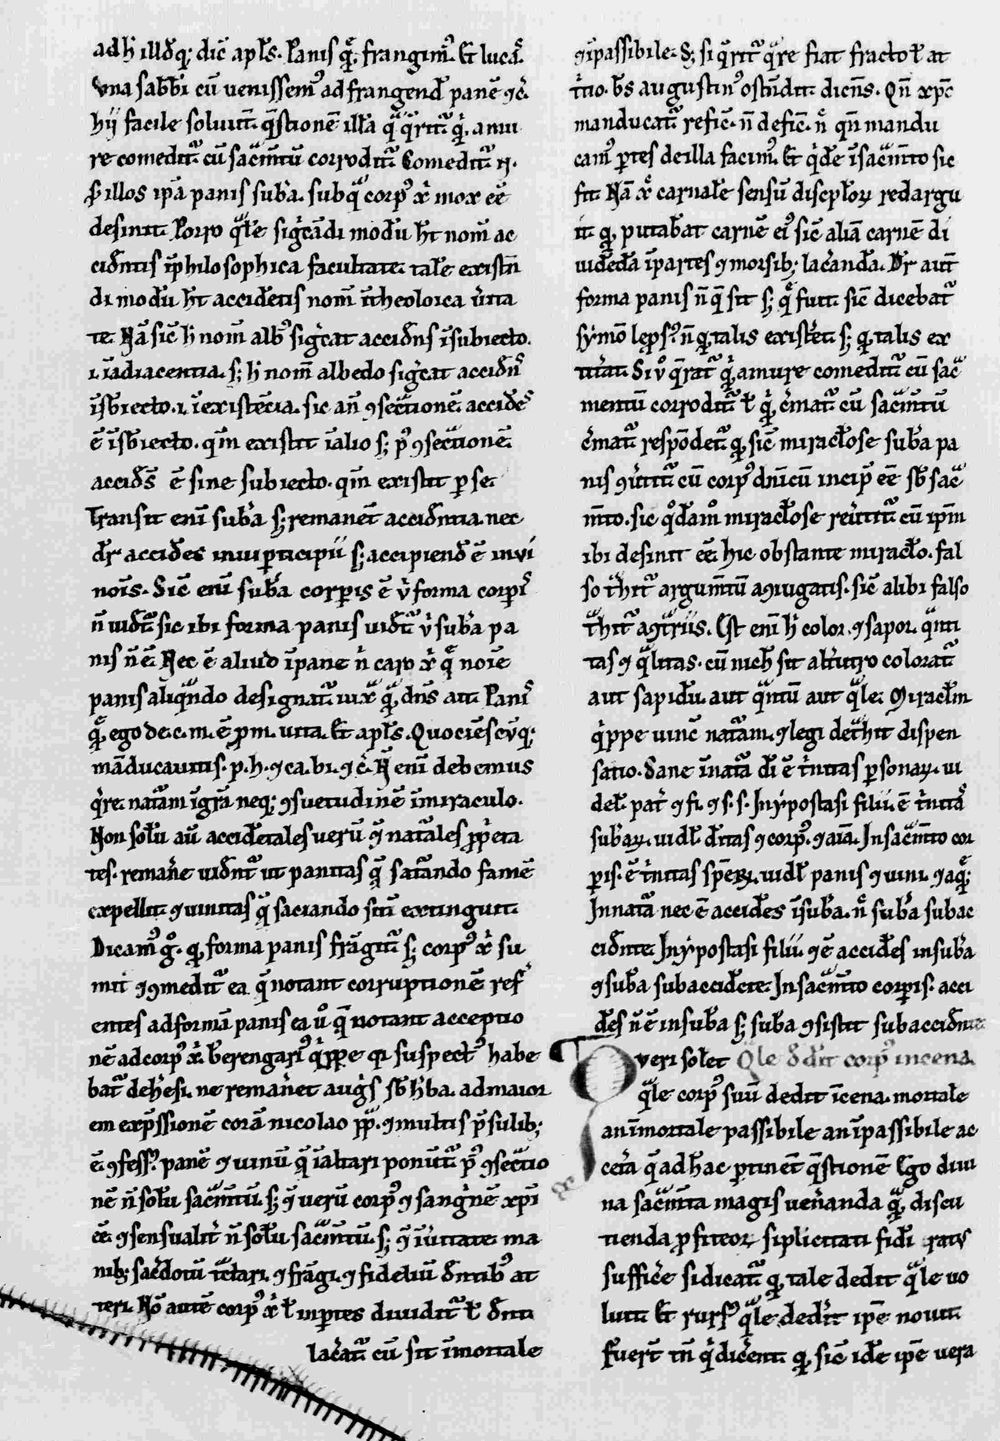 ad h̄ illd̄q; dic̄ apl̄s. Panis q̄ frangim᷒. Et lucas.
Vna sabb̄i cū uenissem᷒ ad frangend̄ panē ⁊c̄.
hij facile soluūt q̄stionē illā qua q̄ritur q̄ amu
re comeditur cū sac̄m̄tū corroditur Comeditur .n.
ꝑ illos ipā panis sub̄a. sub qua corp᷒ x̄ mox ēē
desinit. Porro q̄le sigcādi modū h̄t nom̄ ac
cidn̄tis ī philosophica facultate. tale existn̄
di modū h̄t accidētis nom̄ ī theoloica ueri ta
te. Nā sic̄ h̄ nom̄ alb᷒ sigcat accidn̄s ī subiecto.
.i. ī adiacentia. s; h̄ nom̄ albedo sigcat accidn̄s
ī sb̄iecto .i. ī existētia. sic an̄ ⁊secrationē accidēs
ē ī sb̄iecto. qm̄ existit ī alio s; p᷒ ⁊secrationē
accidn̄s ē sine subiecto. qm̄ existit ꝑ se.
Transit enī sub̄a s; remanēt accidn̄tia. nec
dr̄ accidēs in ui participii s; accipiend̄ ē in ui
nois. Sic̄ enī sub̄a corꝑis ē ⁊ forma corꝑis
n̄ uidetur sic ibi forma panis uidetur ⁊ sub̄a pa
nis n̄ ē. Nec ē aliud ī pane n̄ caro x̄ q̄ noīe
panis aliqn̄do designatur iux̄ q̄ dn̄s ait. Panis
q̄ ego de .c.m. ē ꝓ m. uita. Et apl̄s. Quociēscūq;
māducaueritis .p.h. ⁊ ca. bi. ⁊c̄. N̄ enī debemus
q̄rere natam ī gr̄a neq; ⁊suetudinē ī miraculo.
Non solū aū accidētales uerū ⁊ nat̄ales ꝓprieta
tes. remanere uidn̄tur ut panitas q̄ satiando famē
expellit. ⁊ uinitas q̄ saciando sitī extinguit.
Dicam᷒ g̊. q̄ forma panis frāgitur s; corp᷒ x̄ su
mit ⁊ ⁊meditur ea q̄ notant corruptionē ref
entes ad formā panis ea u̇ q̄ notant acceptio
nē ad corp᷒ x̄. berengari᷒ q̄ppe qr suspect᷒ habe
batur de heresi. ne remanēt augs sb̄ h̄ba. ad maior
em exp̄ssionē corā nicolao pp̄. ⁊ multis p̄sulib;
ē ⁊fess᷒. panē ⁊ uinū q̄ ī altari ponūtur p᷒ ⁊secratio
nē n̄ solū sac̄m̄tū s; ⁊ uerū corp᷒ ⁊ sangnē xp̄i
ēē. ⁊ sensualit̄ n̄ solū sac̄m̄tū. s; ⁊ ī ueritate ma
nib; sacdotū tractari. ⁊ frāgi. ⁊ fideliū dentib᷒ at
teri. Nō autē corp᷒ x̄ ł in partes diuiditur ł dentib᷒
lac̄atur cū sit īmortale
⁊ īpassibile. S; si q̄ritur q̄re fiat fractio ł at
tritio. bs̄ augustin᷒ ostn̄dit dicn̄s. Qn̄ xp̄c
manducatur refic̄. n̄ defic̄. n̄ qn̄ mandu
cam᷒ ꝑtes de illa facim᷒. Et q̄de ī sac̄m̄to sic
fit. Nā x̄ carnalē sensū discipl̄oꝝ redargu
it q̄ putabat carnē ei᷒ sic̄ aliā carnē di
uidēdā ī partes ⁊ morsib; lac̄andā. Dr̄ aut̄
forma panis n̄ q̄ sit s; q̄ fuit sic̄ dicebatur
symō lepros᷒. n̄ q̄ talis existēt s; q̄ talis ex
titat. Si u̇ q̄ratur q̄ a mure comeditur cū sac̄
mentū corroditur ł q̄ c̄matur cū sac̄m̄tū
c̄matur respōdetur q̄ sic̄ miracl̄ose sub̄a pa
nis ⁊uertitur cū corp᷒ dn̄icū incip̄ ēē sb̄ sac̄
m̄to. sic q̄dam miracl̄ose reuertitur cū ipm̄
ibi desinit ēē. hic obstante miraclo. fal
so trahitur argum̄tū a ⁊iugatis. sic̄ alibi falso
trahitur a ⁊trariis. Est enī h̄ color. ⁊ sapor. q̄nti
tas ⁊ q̄litas. cū nich̄ sit alterutro coloratū
aut sapidū. aut q̄ntū aut q̄le. Miracl̄m
q̄ppe uinc̄ naturam. ⁊ legi detrahit dispen
satio. Sane ī natura di ē trinitas ꝑsonaꝝ. ui
del. patris ⁊ fi. ⁊ s.s. In ypostasi filii ē trinitas
sub̄aꝝ. uidl̄. deitas ⁊ corp᷒. ⁊ aīa. In sac̄m̄to cor
ꝑis. ē trinitas spēꝝ. uidl̄ panis ⁊ uini ⁊ aq̄.
In natura nec ē accidēs ī sub̄a. n̄ sub̄a subac
cidn̄te. In ypostasi filii ⁊ ē accidēs in sub̄a
⁊ sub̄a sub accidēte. In sac̄m̄to corꝑis. acci
dēs n̄ ē in sub̄a s; sub̄a ⁊sistit sub accidn̄te
Queri solet Q̄le d̄ dedit corp᷒ in cena.
q̄le corp᷒ suū dedit ī cena. mortale
an īmortale passibile an īpassibile ⁊
cetera q̄ ad hāc ꝑtinēt q̄stionē. Ego diui
na sac̄m̄ta magis uen̄anda q̄ discu
tienda ꝓfiteor. siplicitati fidei ratus
suffic̄e si dicatur q̄ tale dedit q̄le uo
luit. Et rurs᷒ q̄le dedit ipē nouit.
Fuerūt tn̄ q̄ dic̄ent q̄ sic̄ idē ipē uera